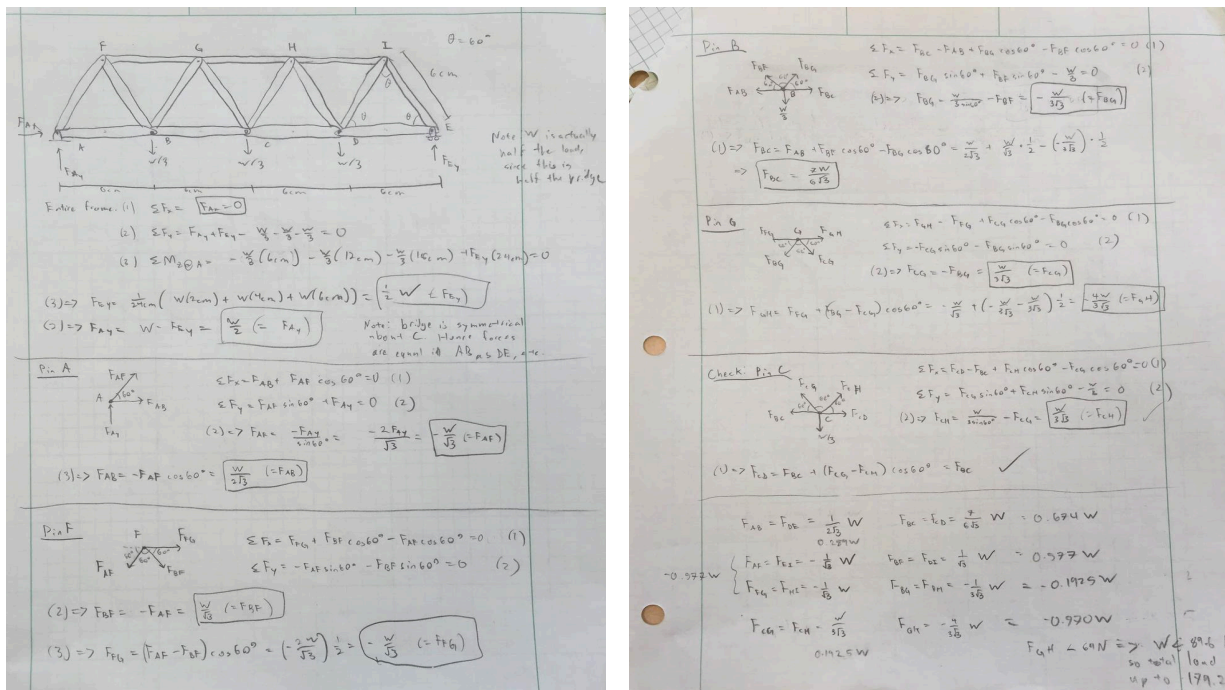 F G H I θ = 60°
6cm
θ
θ θ E
A B C D
W/3 W/3 W/3
6cm 6cm 6cm 6cm
Note W is actually
half the load,
since this is
half the bridge
Entire frame: (1) ΣFx = FAx = 0
(2) ΣFy = FAy + FEy - W/3 - W/3 - W/3 = 0
(3) ΣMz@A = -W/3(6cm) - W/3(12cm) - W/3(18cm) + FEy(24cm) = 0
(3) => FEy = 1/24cm (W(2cm) + W(4cm) + W(6cm)) = 1/2 W (= FEy)
(2) => FAy = W - FEy = W/2 (= FAy)
Note: bridge is symmetrical
about C. Hence forces
are equal in AB as DE, etc.
Pin A
FAF
A 60° FAB
FAy
ΣFx = FAB + FAF cos 60° = 0 (1)
ΣFy = FAF sin 60° + FAy = 0 (2)
(2) => FAF = -FAy/sin60° = -2FAy/√3 = -W/√3 (= FAF)
(3) => FAB = -FAF cos60° = W/2√3 (= FAB)
Pin F
F FFG
60° 60° 60°
FAF FBF
ΣFx = FFG + FBF cos60° - FAF cos60° = 0 (1)
ΣFy = -FAF sin60° - FBF sin60° = 0 (2)
(2) => FBF = -FAF = W/√3 (= FBF)
(3) => FFG = (FAF - FBF) cos60° = (-2W/√3) 1/2 = -W/√3 (= FFG)
Pin B
FBF FBG
FAB B FBC
W/3
ΣFx = FBC - FAB + FBG cos60° - FBF cos60° = 0 (1)
ΣFy = FBG sin60° + FBF sin60° - W/3 = 0 (2)
(2) => FBG = W/3sin60° - FBF = -W/3√3 (= FBG)
(1) => FBC = FAB + FBF cos60° - FBG cos60° = W/2√3 + W/√3 · 1/2 - (-W/3√3) · 1/2
=> FBC = 7W/6√3
Pin G
FFG G FGH
FBG FCG
ΣFx = FGH - FFG + FCG cos60° - FBG cos60° = 0 (1)
ΣFy = -FCG sin60° - FBG sin60° = 0 (2)
(2) => FCG = -FBG = W/3√3 (= FCG)
(1) => FGH = FFG + (FBG - FCG) cos60° = -W/√3 + (-W/3√3 - W/3√3) 1/2 = -4W/3√3 (= FGH)
Check: Pin C
FCG FCH
FBC C FCD
W/3
ΣFx = FCD - FBC + FCH cos60° - FCG cos60° = 0 (1)
ΣFy = FCG sin60° + FCH sin60° - W/3 = 0 (2)
(2) => FCH = W/3sin60° - FCG = W/3√3 (= FCH) ✓
(1) => FCD = FBC + (FCG - FCH) cos60° = FBC ✓
FAB = FDE = 1/2√3 W FBC = FCD = 7/6√3 W = 0.674W
0.289W
FAF = FEI = -1/√3 W FBF = FDI = 1/√3 W = 0.577W
-0.577W
FFG = FHI = -1/√3 W FBG = FDH = -1/3√3 W = -0.1925W
FCG = FCH = W/3√3 FGH = -4/3√3 W = -0.770W
0.1925W
FGH < 69N => W < 89.6
so total load
up to 179.2